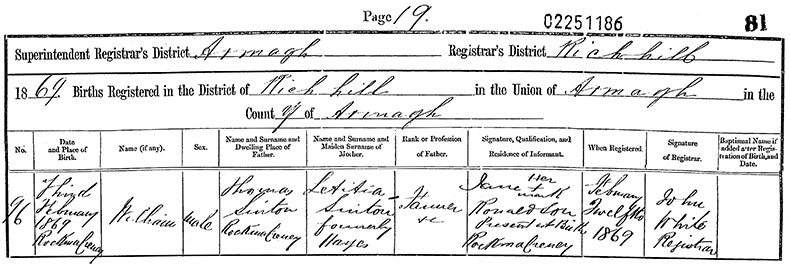 Page 19.
02251186
81
Superintendent Registrar's District Armagh Registrar's District Richhill
1869. Births Registered in the District of Richhill in the Union of Armagh in the
County of Armagh
No.
Date and Place of Birth.
Name (if any).
Sex.
Name and Surname and Dwelling Place of Father.
Name and Surname and Maiden Surname of Mother.
Rank or Profession of Father.
Signature, Qualification, and Residence of Informant.
When Registered.
Signature of Registrar.
Baptismal Name if added after Registration of Birth, and Date.
96
Third
February
1869
Rockmacreney
William
male
Thomas
Sinton
Rockmacreney
Letitia
Sinton
formerly
Hayes
Farmer
Jane Her + mark
Ronaldson
Present at Birth
Rockmacreney
February
Twelfth
1869
John
White
Registrar